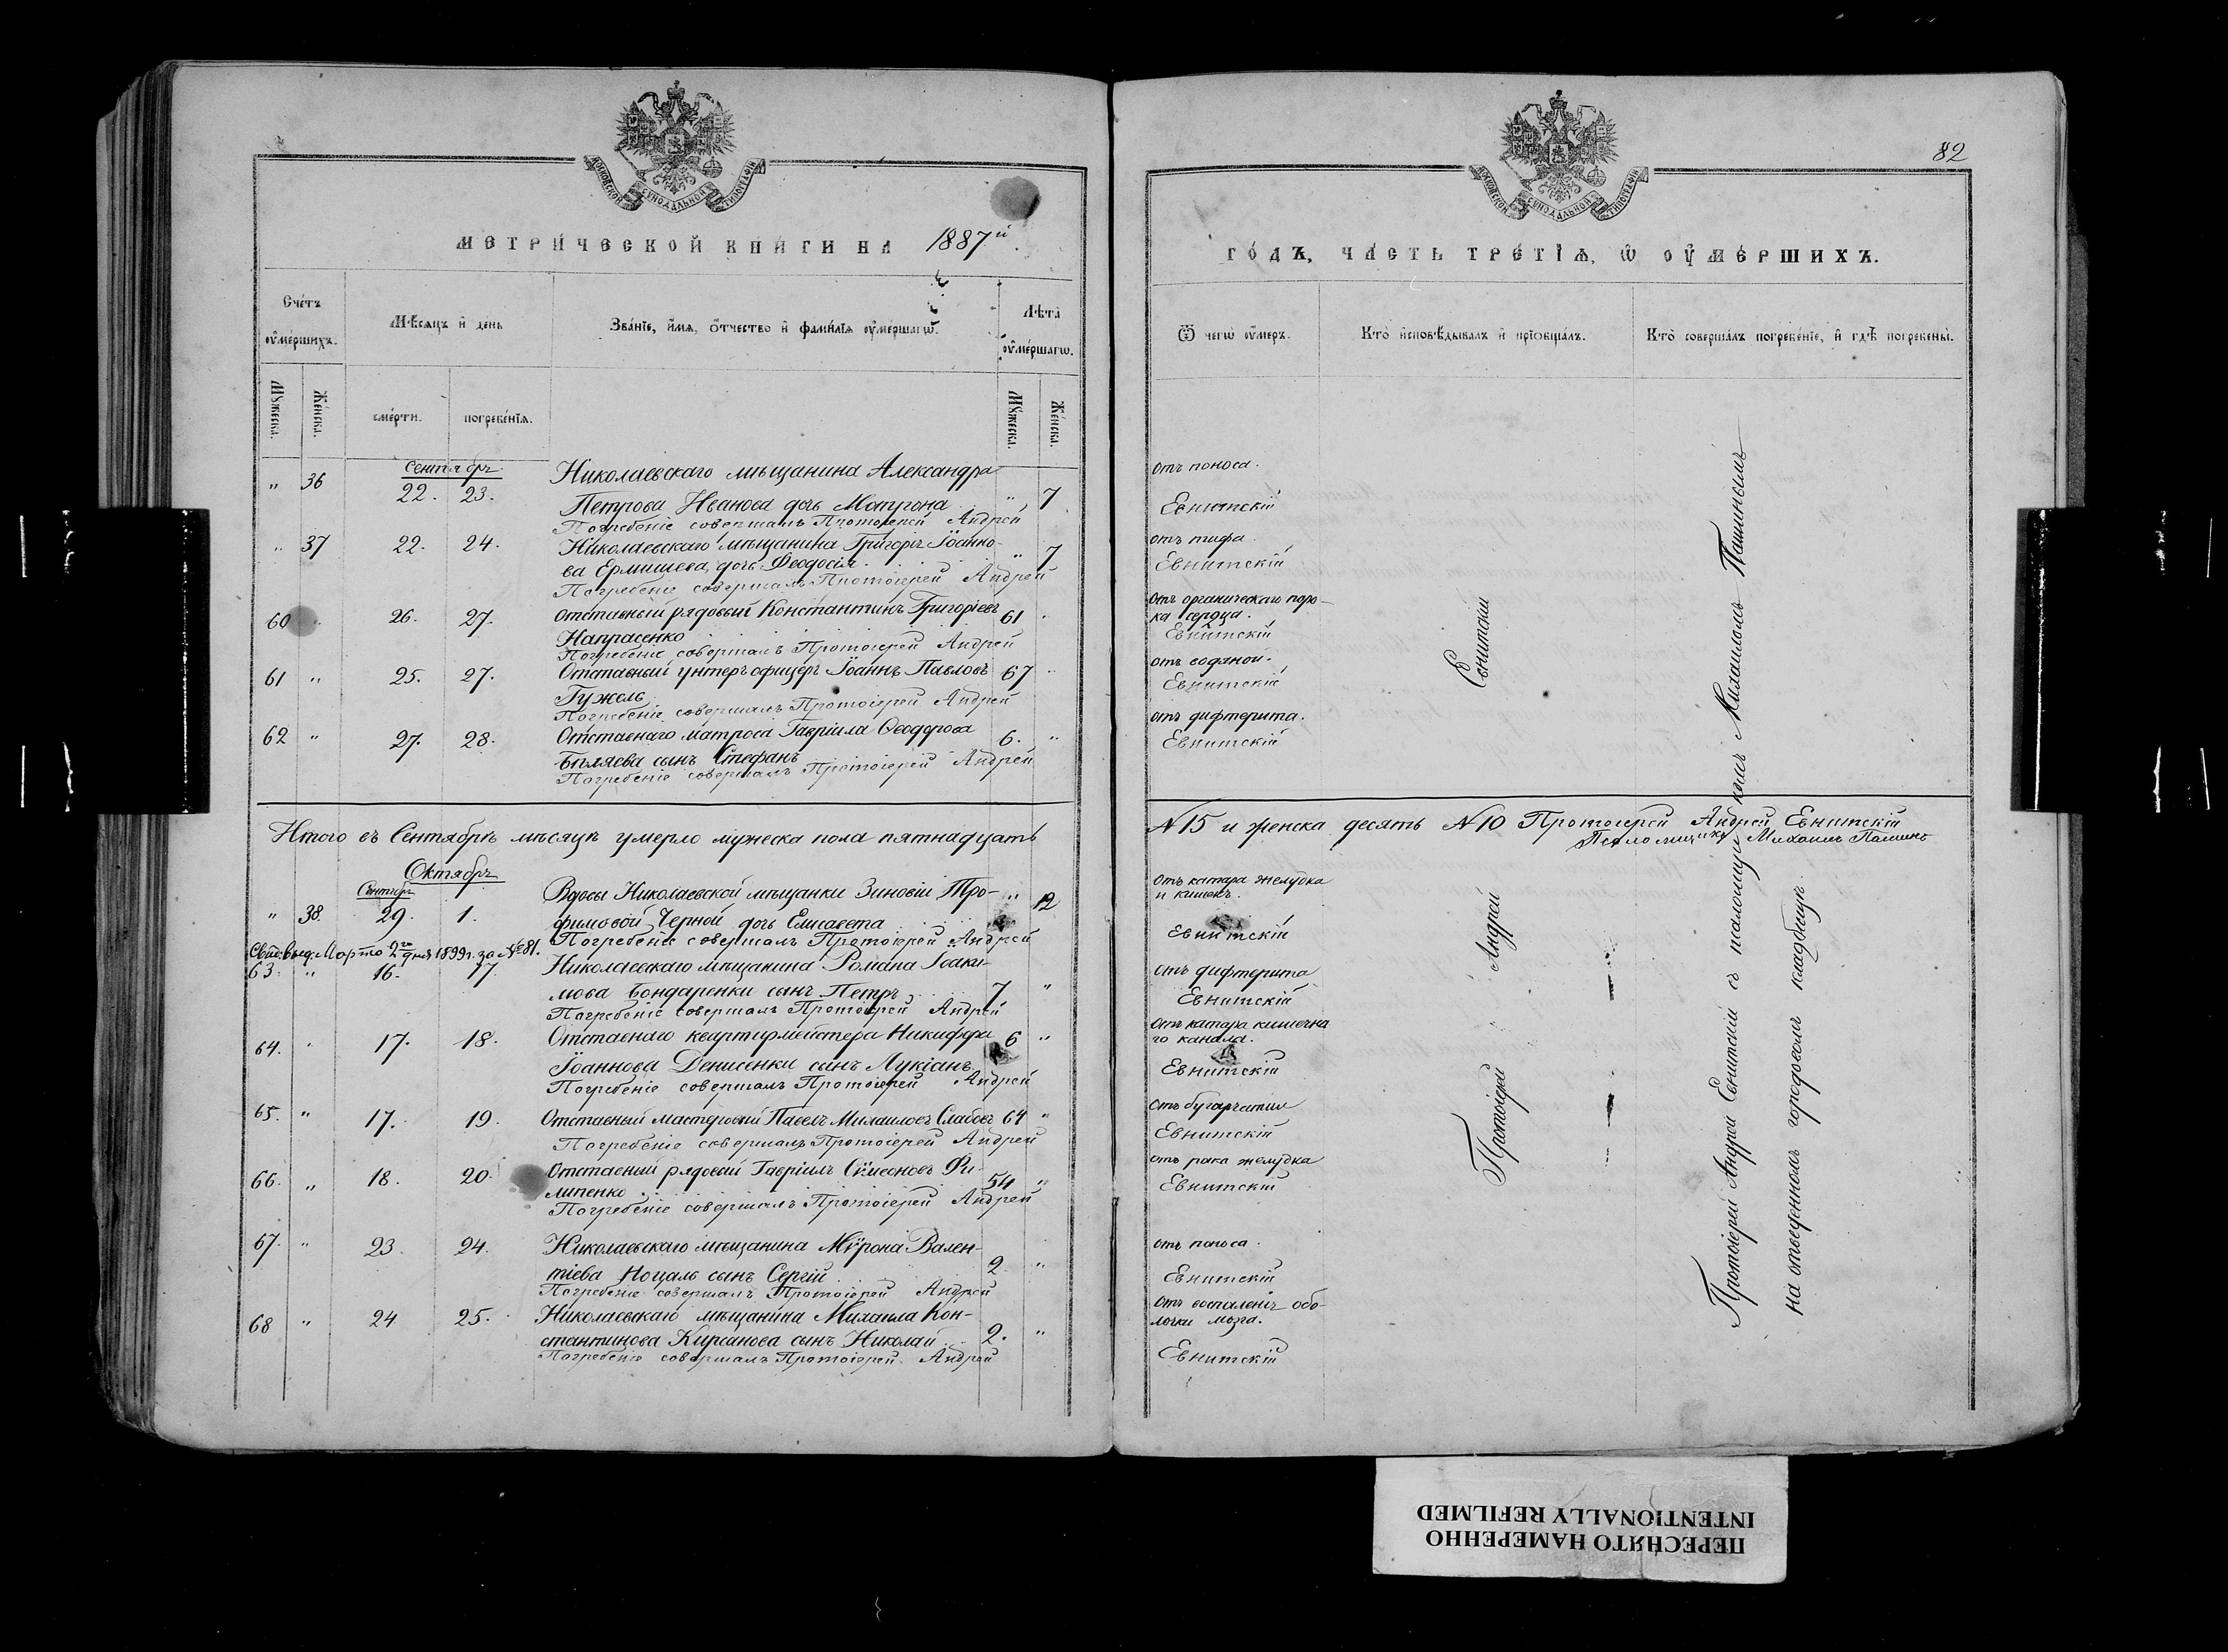 МОСКОВСКОЙ СѴНОДАЛЬНОЙ ТИПОГРАФІИ
МЕТРИ́ЧЕСКОЙ КНИ́ГИ НА 1887й
Сче́тъ ᲂу҆ме́ршихъ.
Мѣ́сяцъ и҆ де́нь
Зва́нїе, и҆́мѧ, ѻ҆́тчество и҆ фами́лїѧ ᲂу҆ме́ршагѡ.
Лѣ́та ᲂу҆ме́ршагѡ.
Мꙋ́жеска.
Же́нска.
сме́рти.
погребе́нїѧ.
Мꙋ́жеска.
Же́нска.
Сентябрь
„ 36 22. 23. Николаевскаго мѣщанина Александра
Петрова Иванова дочь Матрона „ 7
Погребеніе совершалъ Протоіерей Андрей
„ 37 22. 24. Николаевскаго мѣщанина Григорія Іоанно-
ва Ермишева, дочь Ѳеодосія „ 7
Погребеніе совершалъ Протоіерей Андрей
60 „ 26. 27. Отставный рядовый Константинъ Григоріевъ 61
Напрасенко
Погребеніе совершалъ Протоіерей Андрей
61 „ 25. 27. Отставный унтеръ офицеръ Іоаннъ Павловъ 67
Гужель
Погребеніе совершалъ Протоіерей Андрей
62 „ 27. 28. Отставнаго матроса Гавріила Ѳеодорова 6. „
Бѣляева сынъ Стефанъ
Погребеніе совершалъ Протоіерей Андрей
Итого въ Сентябрѣ мѣсяцѣ умерло мужеска пола пятнадцать
Октябрь
Сентябрь
„ 38. 29. 1. Вдовы Николаевской мѣщанки Зиновіи Тро- „ 12
фимовой Черной дочь Елисавета
Погребеніе совершалъ Протоіерей Андрей
Свид. выд. Марта 2го дня 1899 г. за №81.
63. „ 16. 17. Николаевскаго мѣщанина Романа Іоаки-
мова Бондаренки сынъ Петръ 7 „
Погребеніе совершалъ Протоіерей Андрей
64. „ 17. 18. Отставнаго квартирмейстера Никифора 6 „
Іоаннова Денисенки сынъ Лукіанъ
Погребеніе совершалъ Протоіерей Андрей
65. „ 17. 19. Отставный мастеровый Павелъ Михаиловъ Слабовъ 64 „
Погребеніе совершалъ Протоіерей Андрей
66. „ 18. 20. Отставный рядовый Гавріилъ Сѵмеоновъ Фи-
липенко 54 „
Погребеніе совершалъ Протоіерей Андрей
67. „ 23. 24. Николаевскаго мѣщанина Мѵрона Вален-
тіева Ноцаль сынъ Сергій 2 „
Погребеніе совершалъ Протоіерей Андрей
68 „ 24 25. Николаевскаго мѣщанина Михаила Кон-
стантинова Кирсанова сынъ Николай 2. „
Погребеніе совершалъ Протоіерей Андрей
82
МОСКОВСКОЙ СѴНОДАЛЬНОЙ ТИПОГРАФІИ
ГО́ДЪ, ЧА́СТЬ ТРЕ́ТЇѦ, Ѡ҆ ОУ҆МЕ́РШИХЪ.
Ѿ чегѡ̀ ᲂу҆́меръ.
Кто̀ и҆сповѣ́дывалъ и҆ прїѡбща́лъ.
Кто̀ соверша́лъ погребе́нїе, и҆ гдѣ̀ погребены̀.
отъ поноса.
Евнитскій
отъ тифа.
Евнитскій
отъ органическаго поро-
ка сердца.
Евнитскій
отъ водяной.
Евнитскій
отъ дифтерита.
Евнитскій
№15 и женска десять №10 Протоіерей Андрей Евнитскій
Псаломщикъ Михаилъ Пашинъ
отъ катара желудка
и кишекъ.
Евнитскій
отъ дифтерита
Евнитскій
отъ катара кишечна
го канала.
Евнитскій
отъ бугорчатки
Евнитскій
отъ рака желудка
Евнитскій
отъ поноса.
Евнитскій
отъ воспаленія обо-
лочки мозга.
Евнитскій
Протоіерей Андрей Евнитскій
Протоіерей Андрей Евнитскій съ псаломщикомъ Михаиломъ Пашинымъ
на отведенномъ городовомъ кладбищѣ.
ПЕРЕСНЯТО НАМЕРЕННО
INTENTIONALLY REFILMED